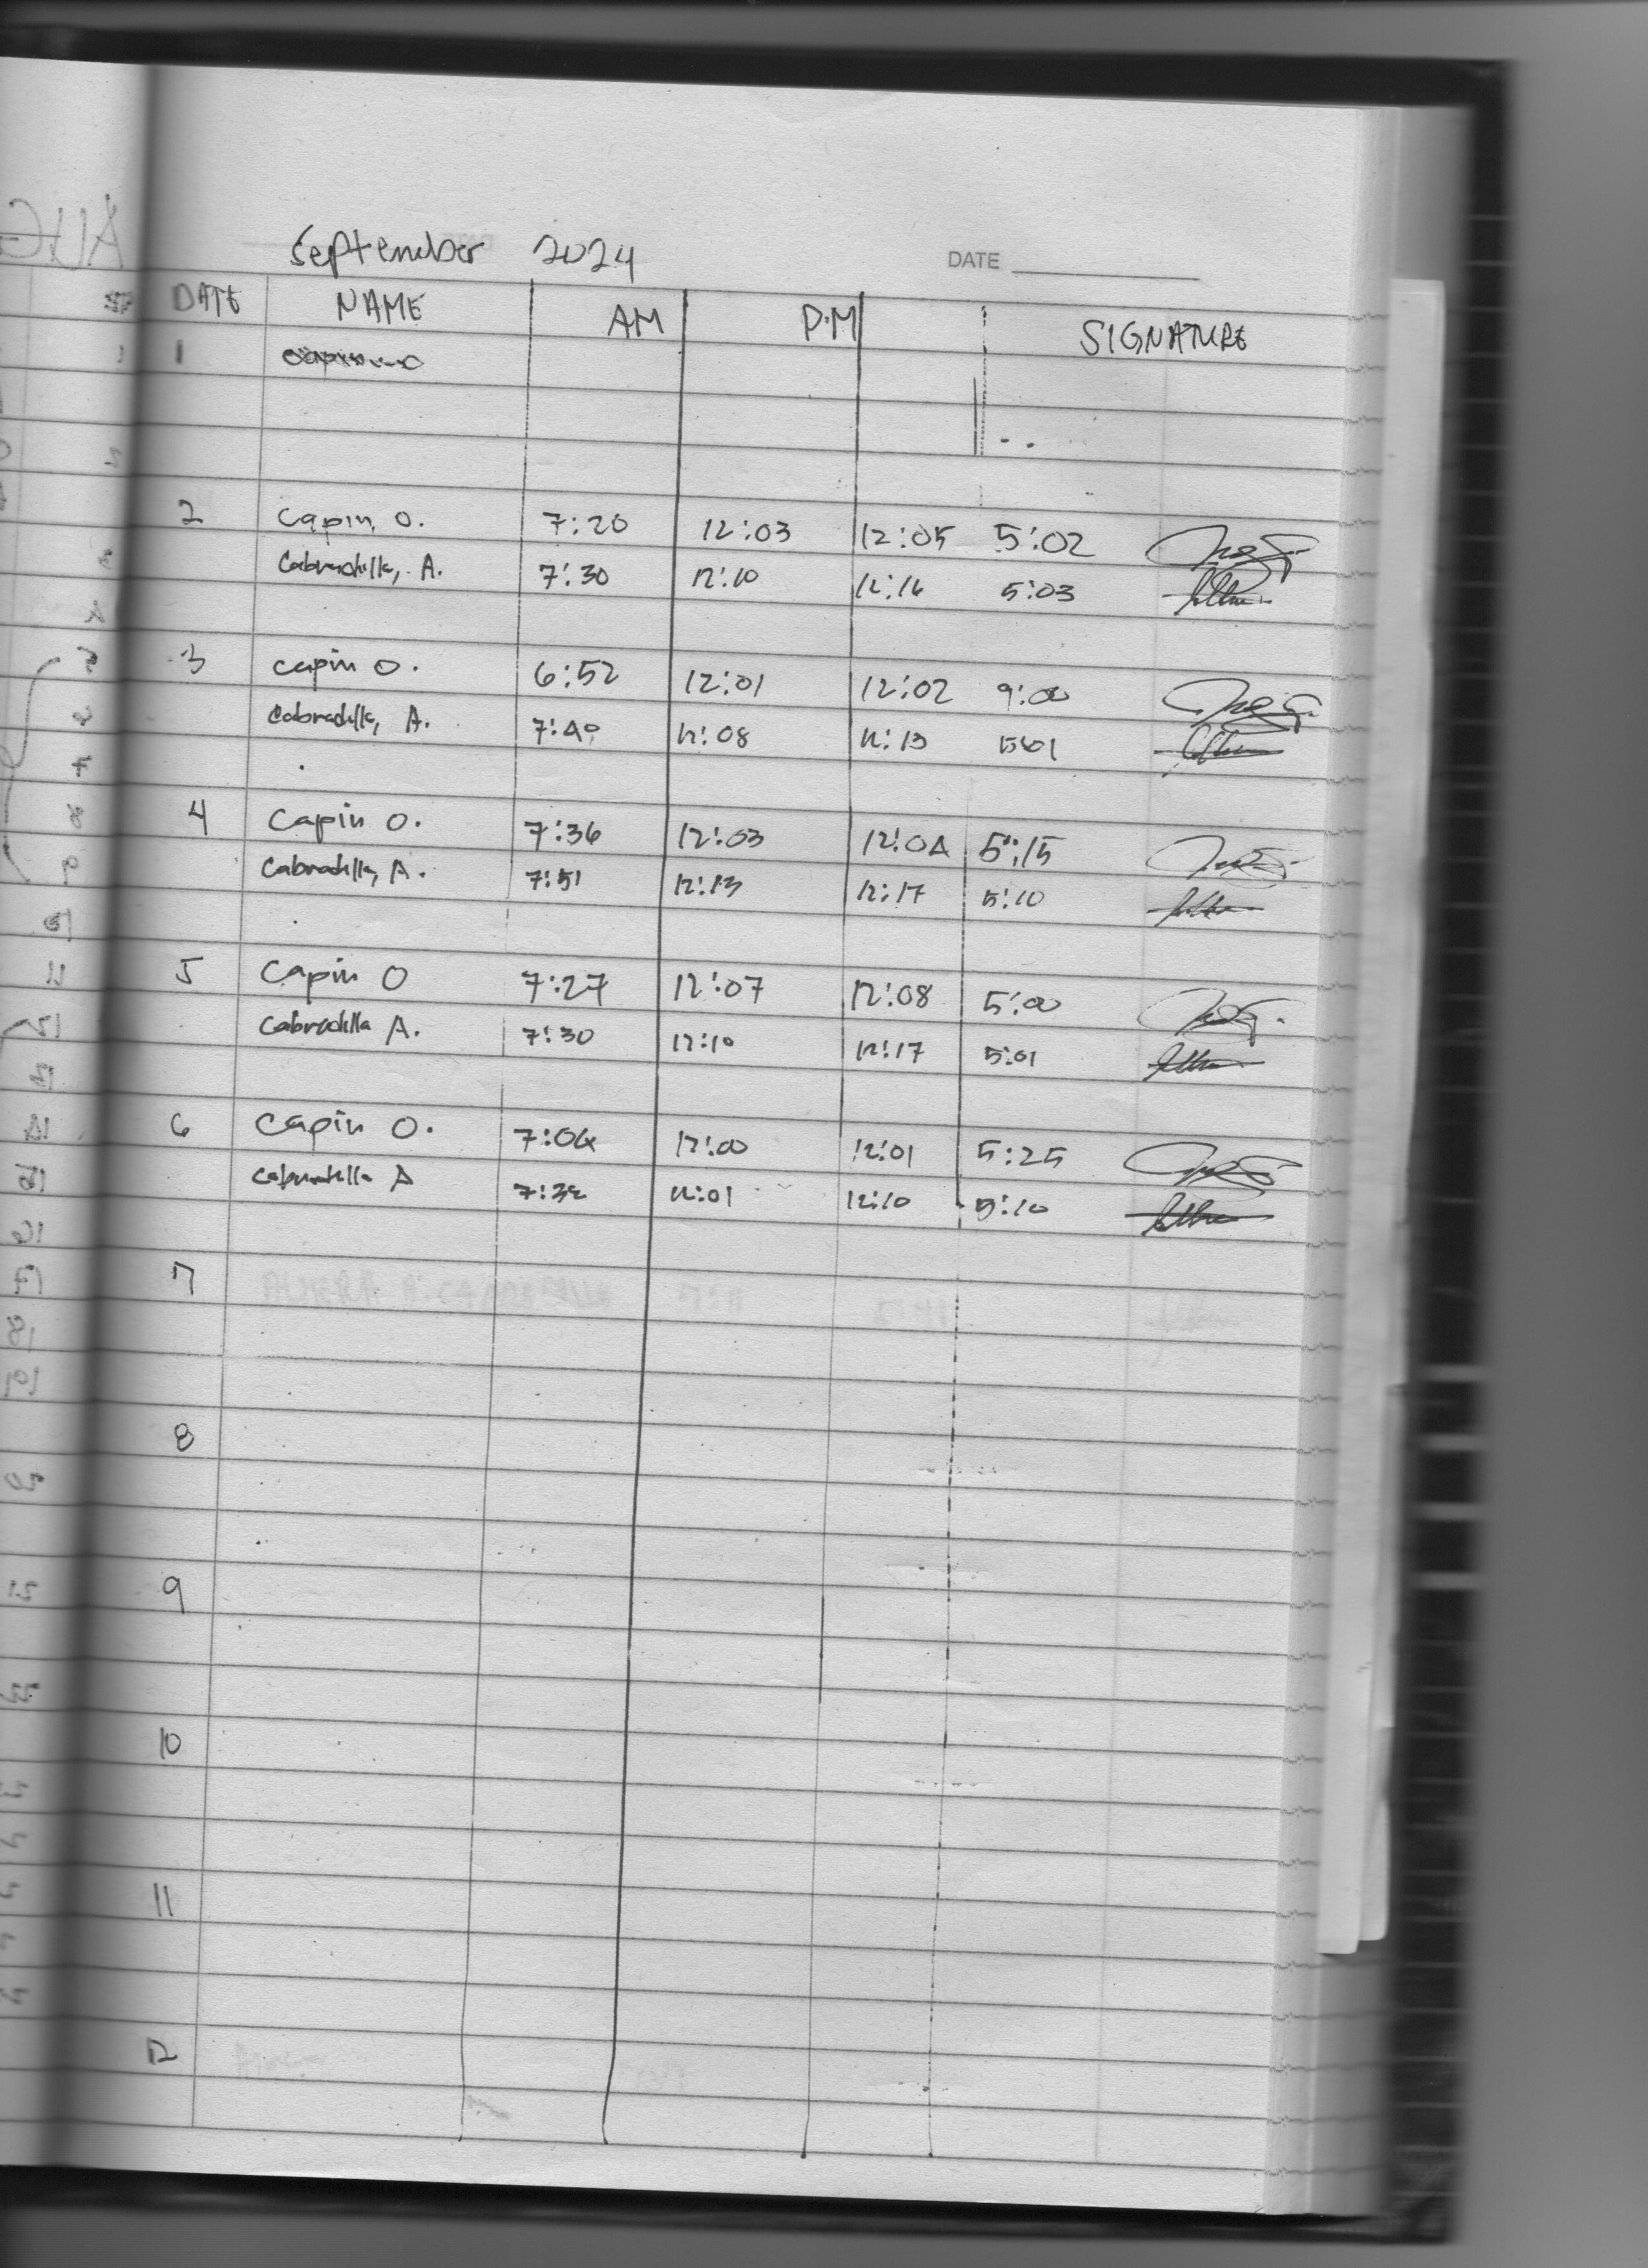 September 2024 DATE
DATE NAME AM P.M SIGNATURE
1
2 Capin, O. 7:20 12:03 12:05 5:02
Cabradilla, A. 7:30 12:10 12:16 5:03
3 Capin O. 6:52 12:01 12:02 9:00
Cabradilla, A. 7:40 12:08 12:13 5:01
4 Capin O. 7:36 12:03 12:04 5:15
Cabradilla, A. 7:51 12:13 12:17 5:10
5 Capin O 7:27 12:07 12:08 5:00
Cabradilla A. 7:30 12:10 12:17 5:01
6 Capin O. 7:04 12:00 12:01 5:25
Cabradilla A 12:01 12:10 5:10
7
8
9
10
11
12